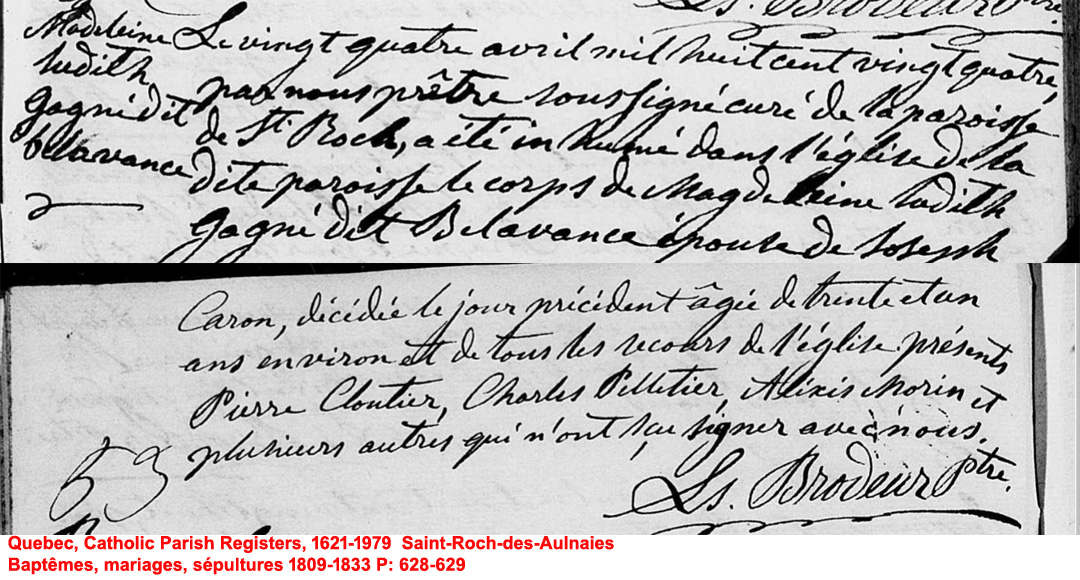 Ls. Brodeur Ptre.
Madeleine
Judith
Gagné dit
Belavance
Le vingt quatre avril mil huit cent vingt quatre,
par nous prêtre soussigné curé de la paroisse
de St. Roch, a été inhumé dans l'église de la
dite paroisse le corps de Magdeleine Judith
Gagné dit Belavance épouse de Joseph
Caron, décédée le jour précédent âgée de trente et un
ans environ et de tous les secours de l'église présents
Pierre Cloutier, Charles Pelletier, Alexis Morin et
plusieurs autres qui n'ont sçu signer avec nous.
Ls. Brodeur Ptre.
53
Quebec, Catholic Parish Registers, 1621-1979 Saint-Roch-des-Aulnaies
Baptêmes, mariages, sépultures 1809-1833 P: 628-629